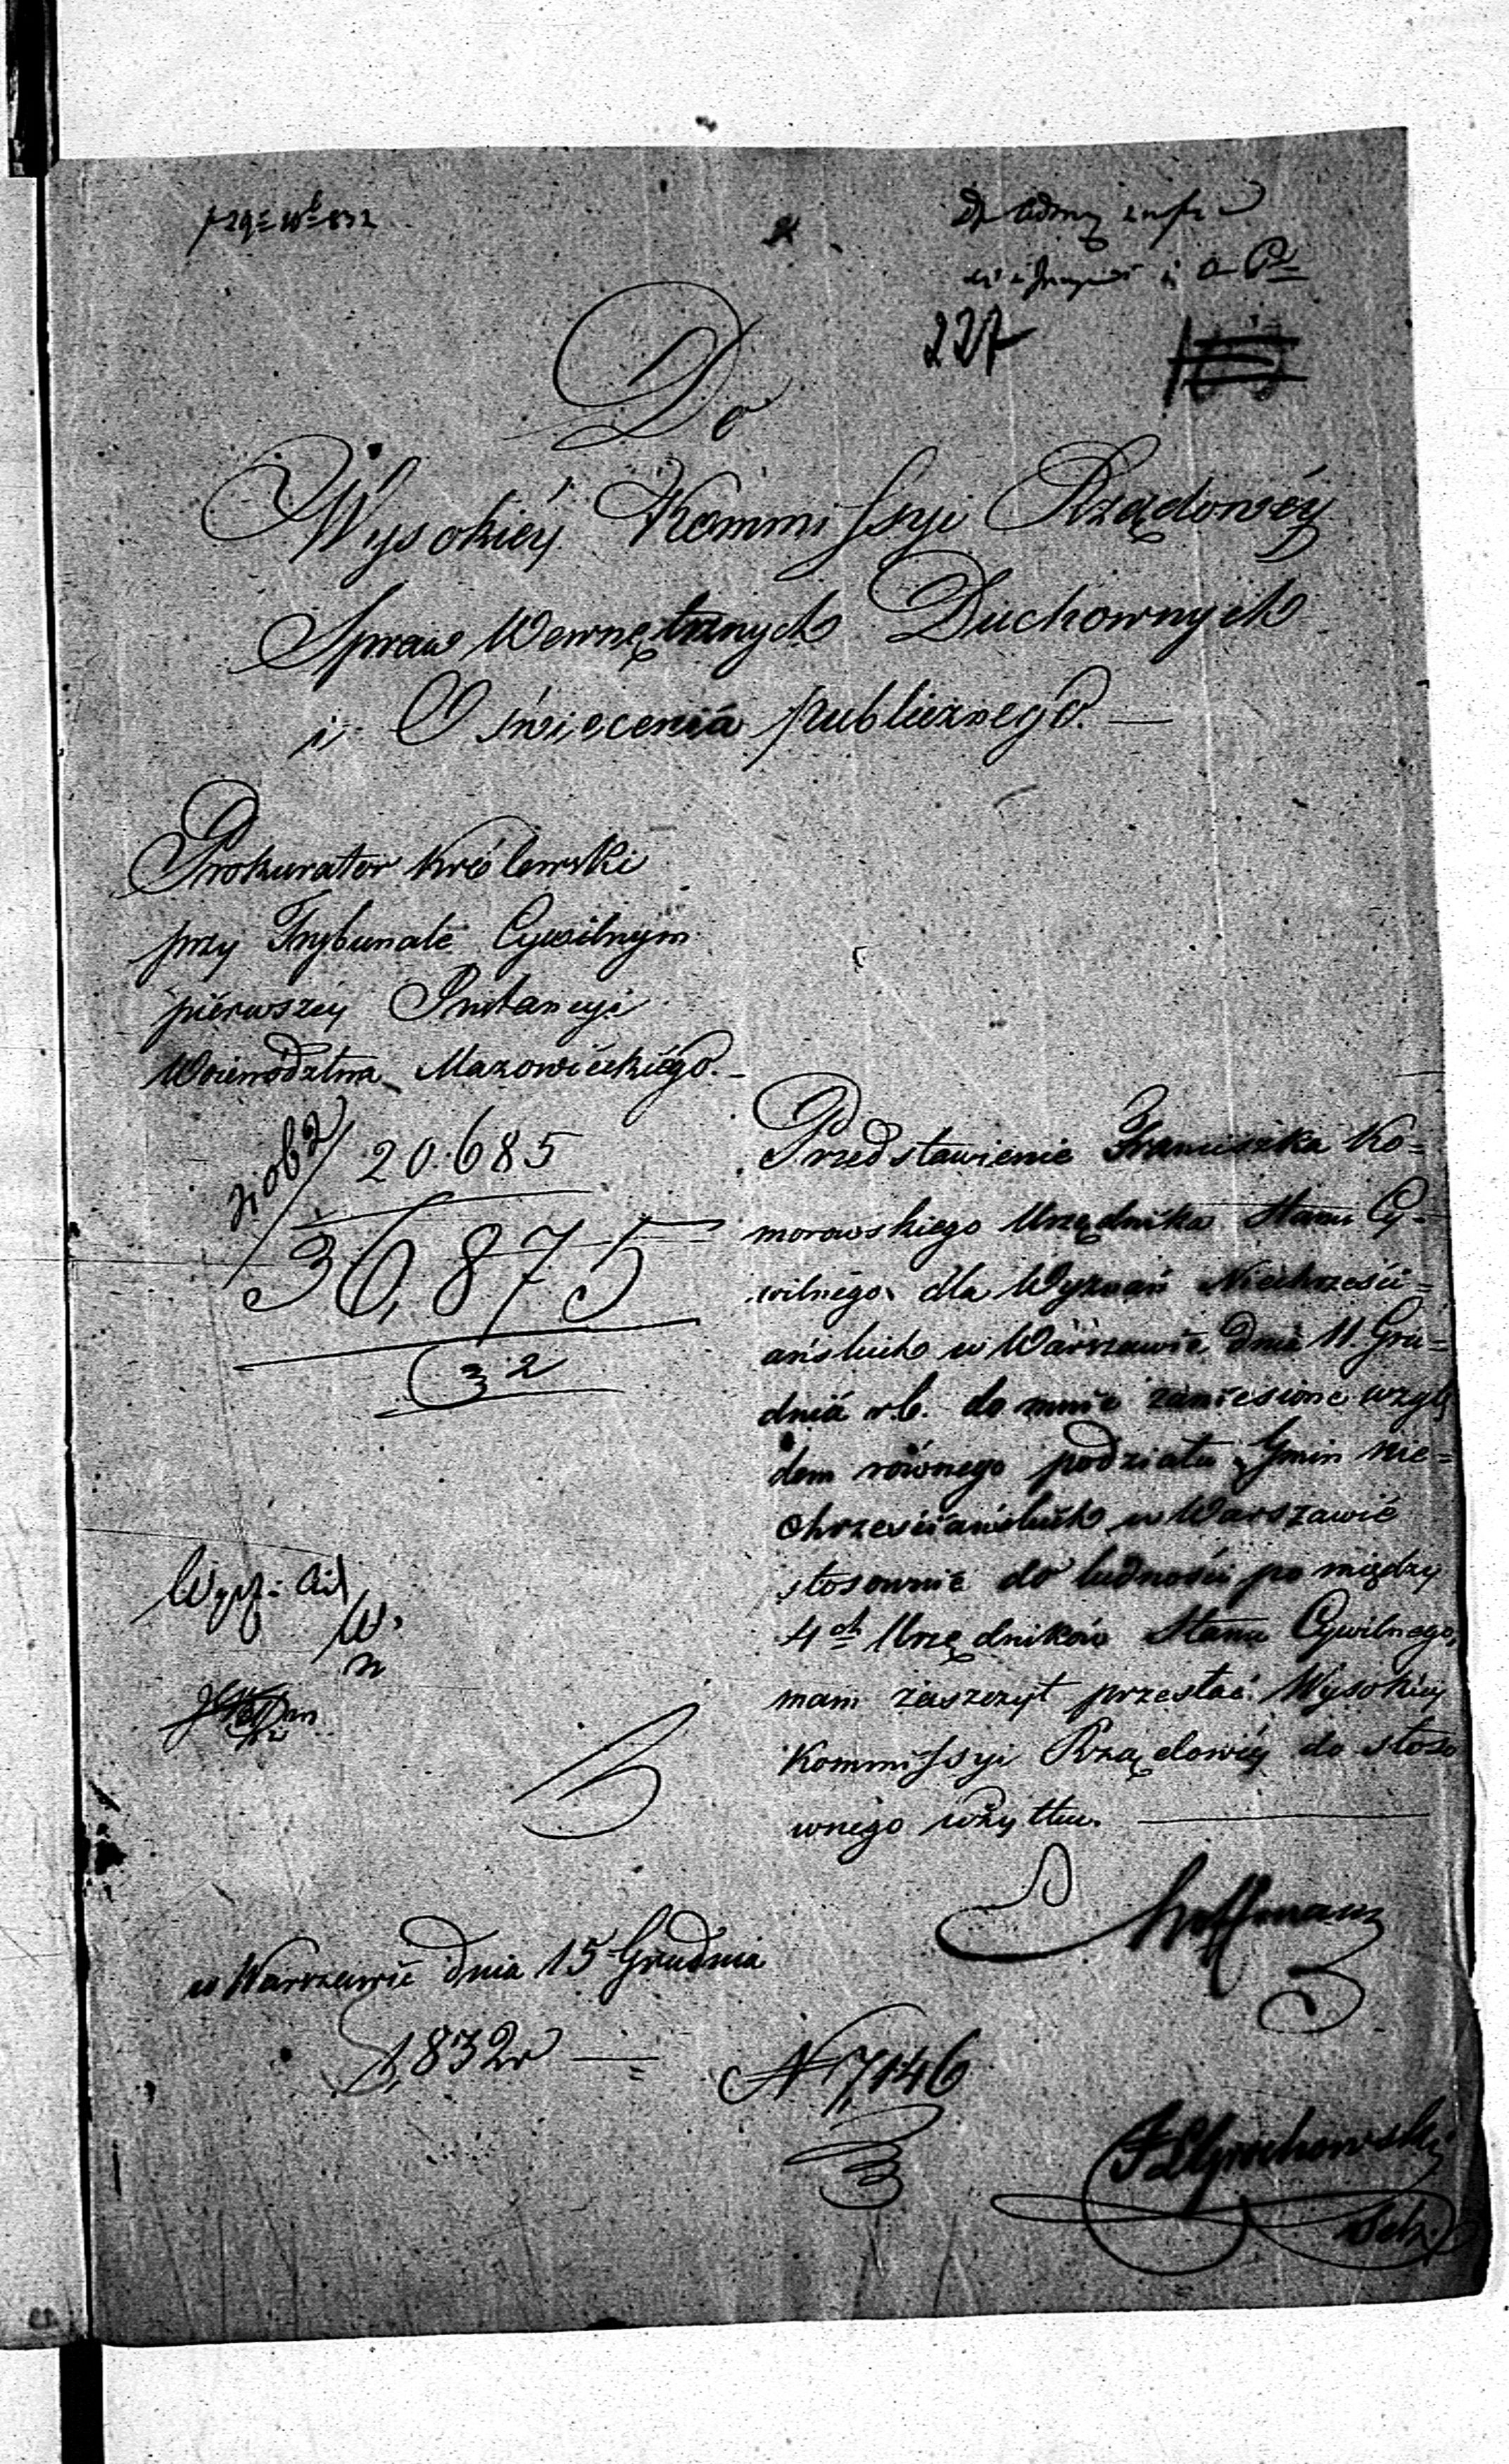 227
Do
Wysokiéy Kommissyi Rządowéy
Spraw Wewnętrznych Duchownych
i Oświecenia publicznego. —
Prokurator Królewski
przy Trybunale Cywilnym
pierwszéy Instancyi
Woiewództwa Mazowieckiégo. –
20.685
36,875
32
Przedstawienie Franciszka Ko=
morowskiego Urzędnika Stanu Cy=
wilnégo dla Wyznań Niechrześci=
ańskich w Warszawie dnia 11. Gru=
dnia r.b. do mnie zaniesione wzglę
dem równego podziału Gmin nie=
chrześciańskich w Warszawié
stosownie do ludności po między
4ch Urzędników Stanu Cywilnego,
mam zaszczyt przesłać Wysokiey
Kommissyi Rządowéy do stoso
wnégo użytku. —
Hoffmann
w Warszawié dnia 15 Grudnia
1832r —
N 7146
Sek.